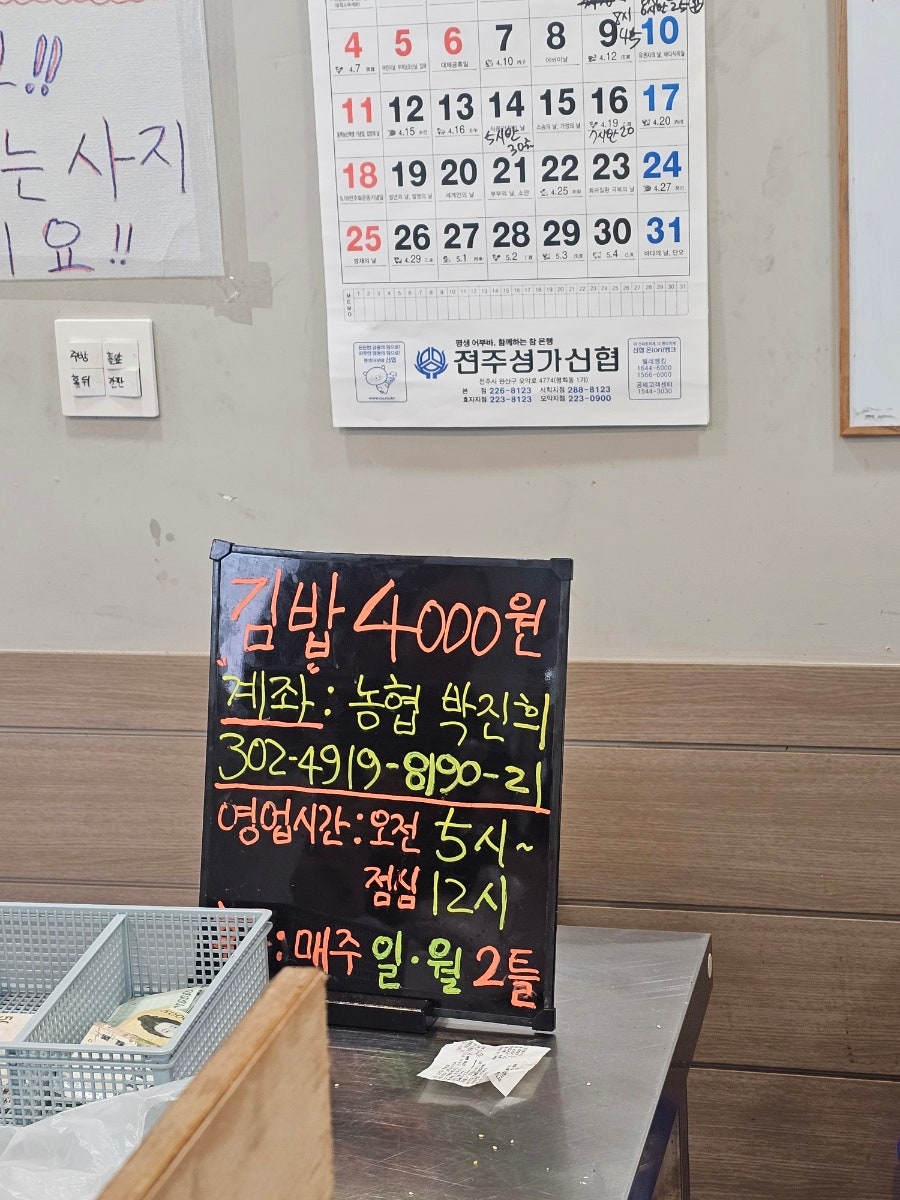 !!
는 사지
요!!
주방 홀앞
홀뒤 간판
4 5 6 7 8 9 10
4.7 대체공휴일 4.10 어버이날 4.12
11 12 13 14 15 16 17
4.15 4.16 4.19 4.20
5시반 30줄 7시반 20
18 19 20 21 22 23 24
4.25 4.27
25 26 27 28 29 30 31
4.29 5.1 5.2 5.3 5.4
MEMO 1 2 3 4 5 6 7 8 9 10 11 12 13 14 15 16 17 18 19 20 21 22 23 24 25 26 27 28 29 30 31
평생 어부바, 함께하는 참 은행
전주성가신협
전주시 완산구 모악로 4774(평화동 1가)
본 점 226-8123 서학지점 288-8123
효자지점 223-8123 모악지점 223-0900
텔레뱅킹
1644-6000
1566-6000
공제고객센터
1544-3030
김밥 4000원
계좌: 농협 박진희
302-4919-8190-21
영업시간: 오전 5시~
점심 12시
: 매주 일·월 2틀